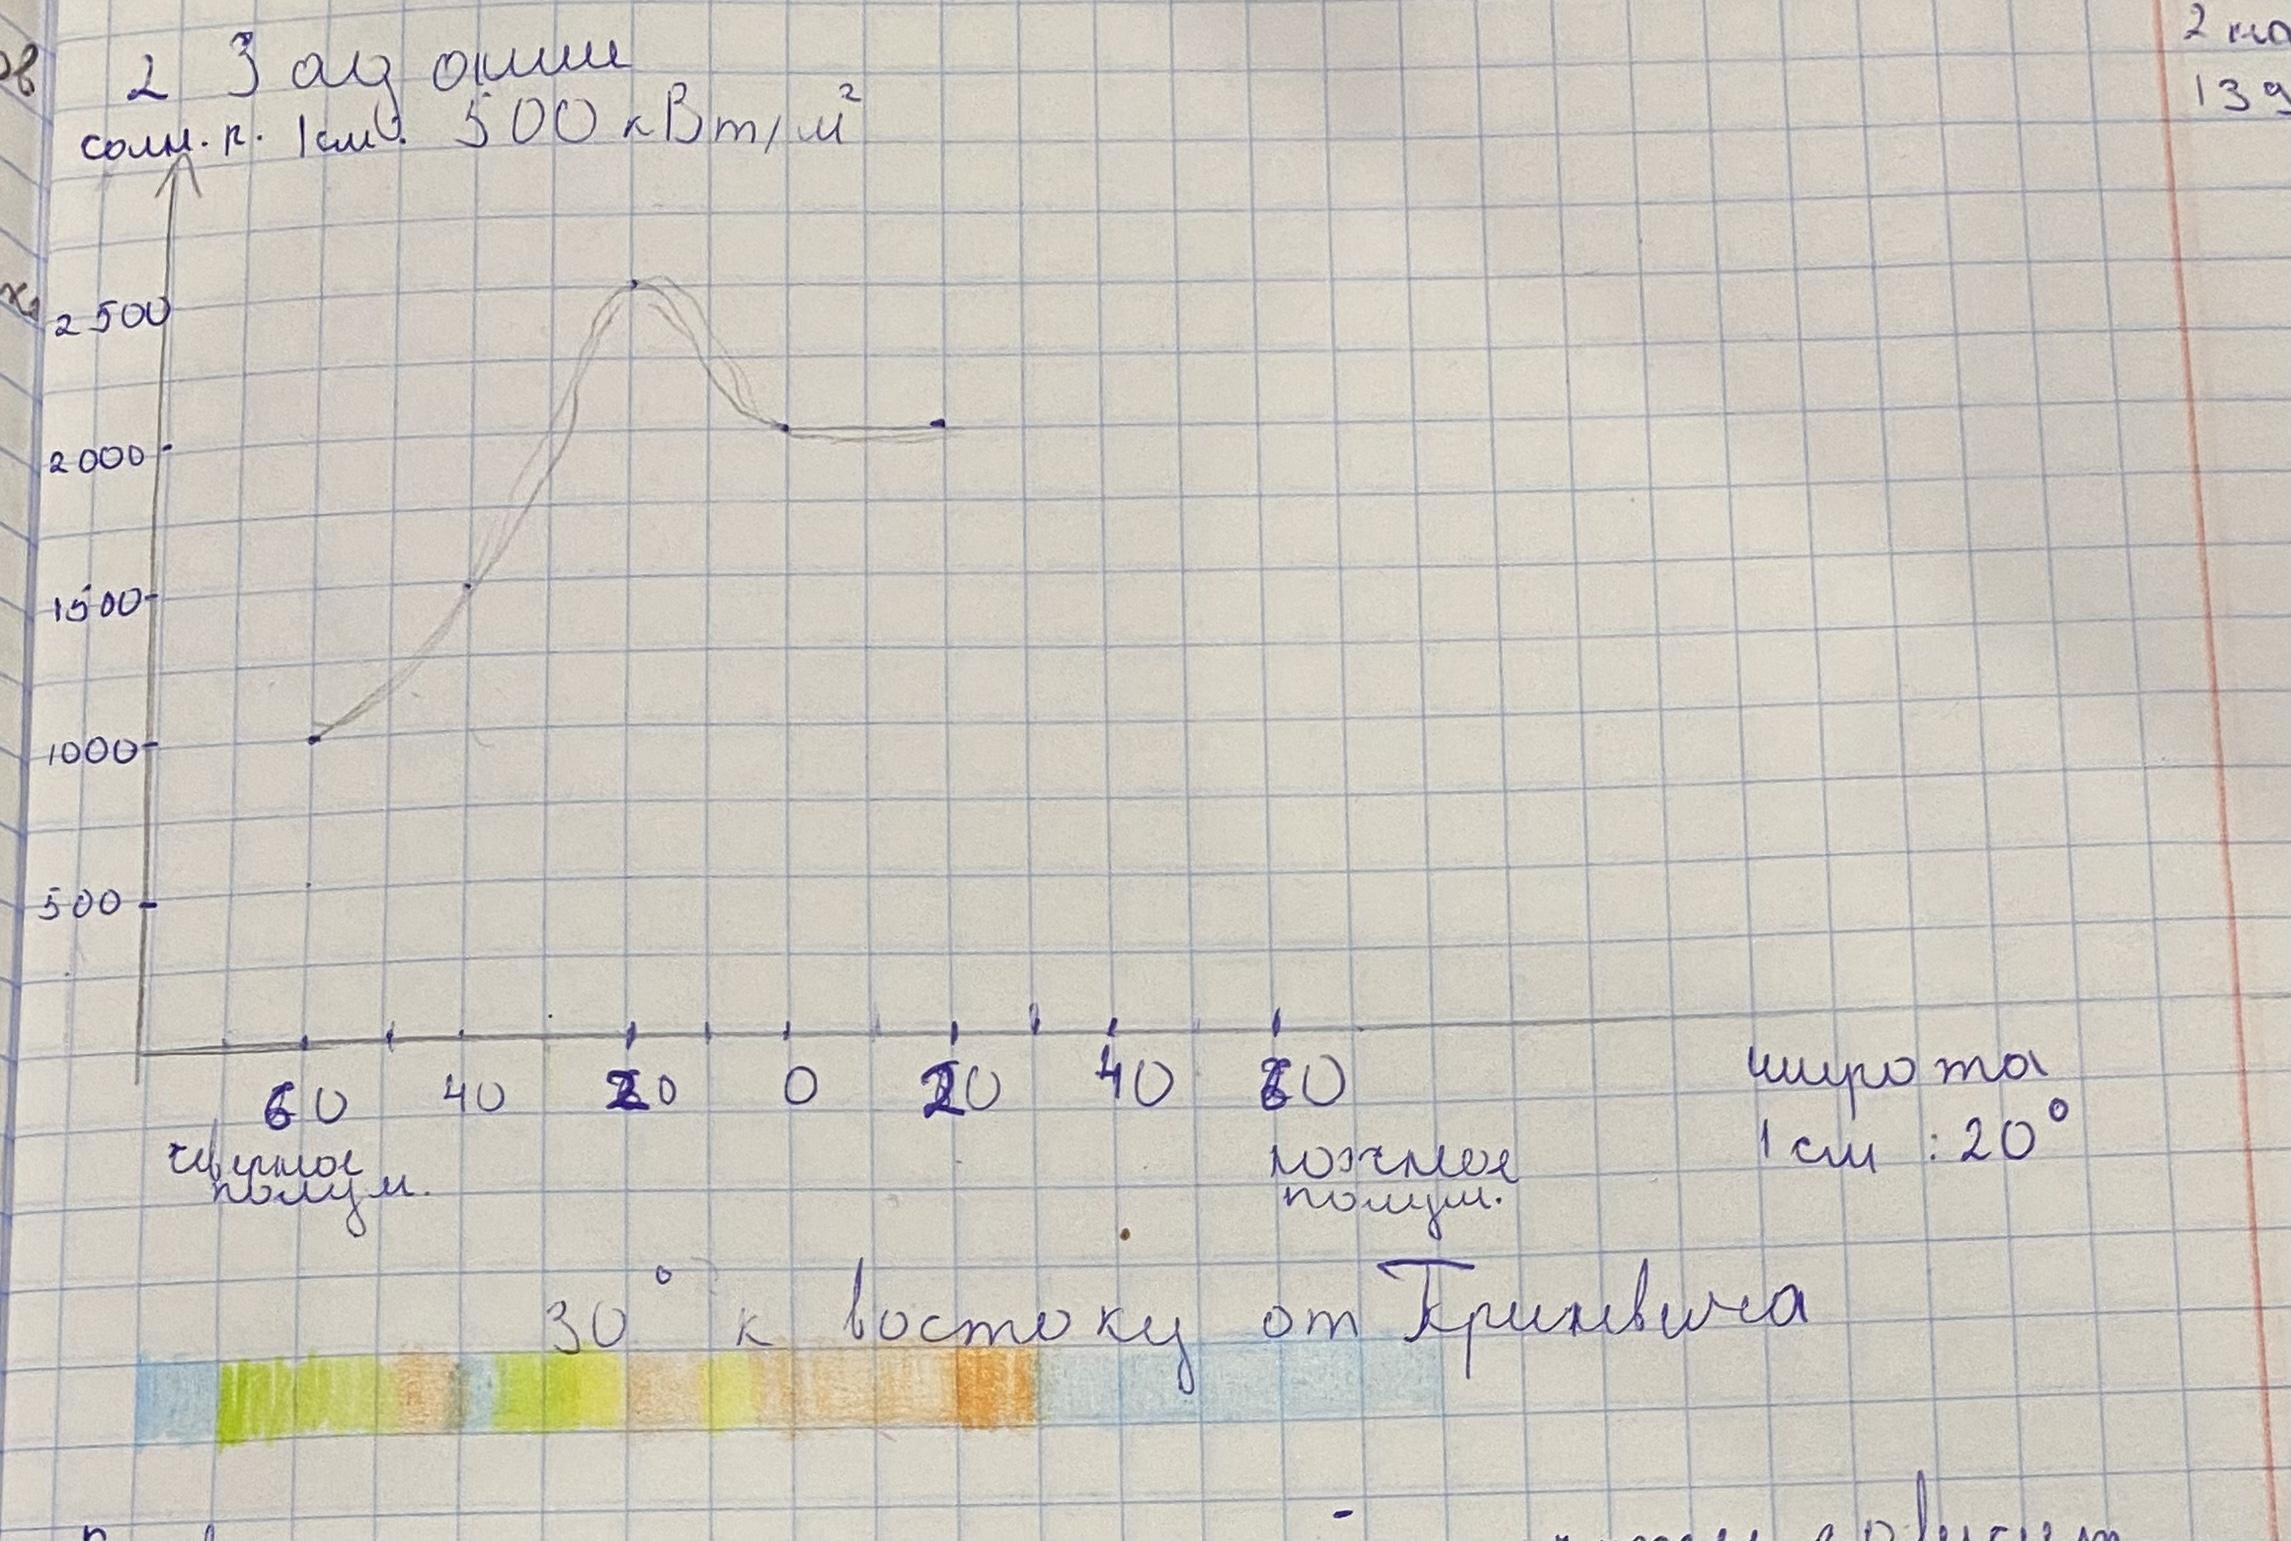 2 Задание
солн. р. 1см: 500 кВт/м²
2 на
2500
2000
1500
1000
500
60 40 20 0 20 40 60
широта
1 см : 20°
северное
полуш.
южное
полуш.
30° к востоку от Гринвича